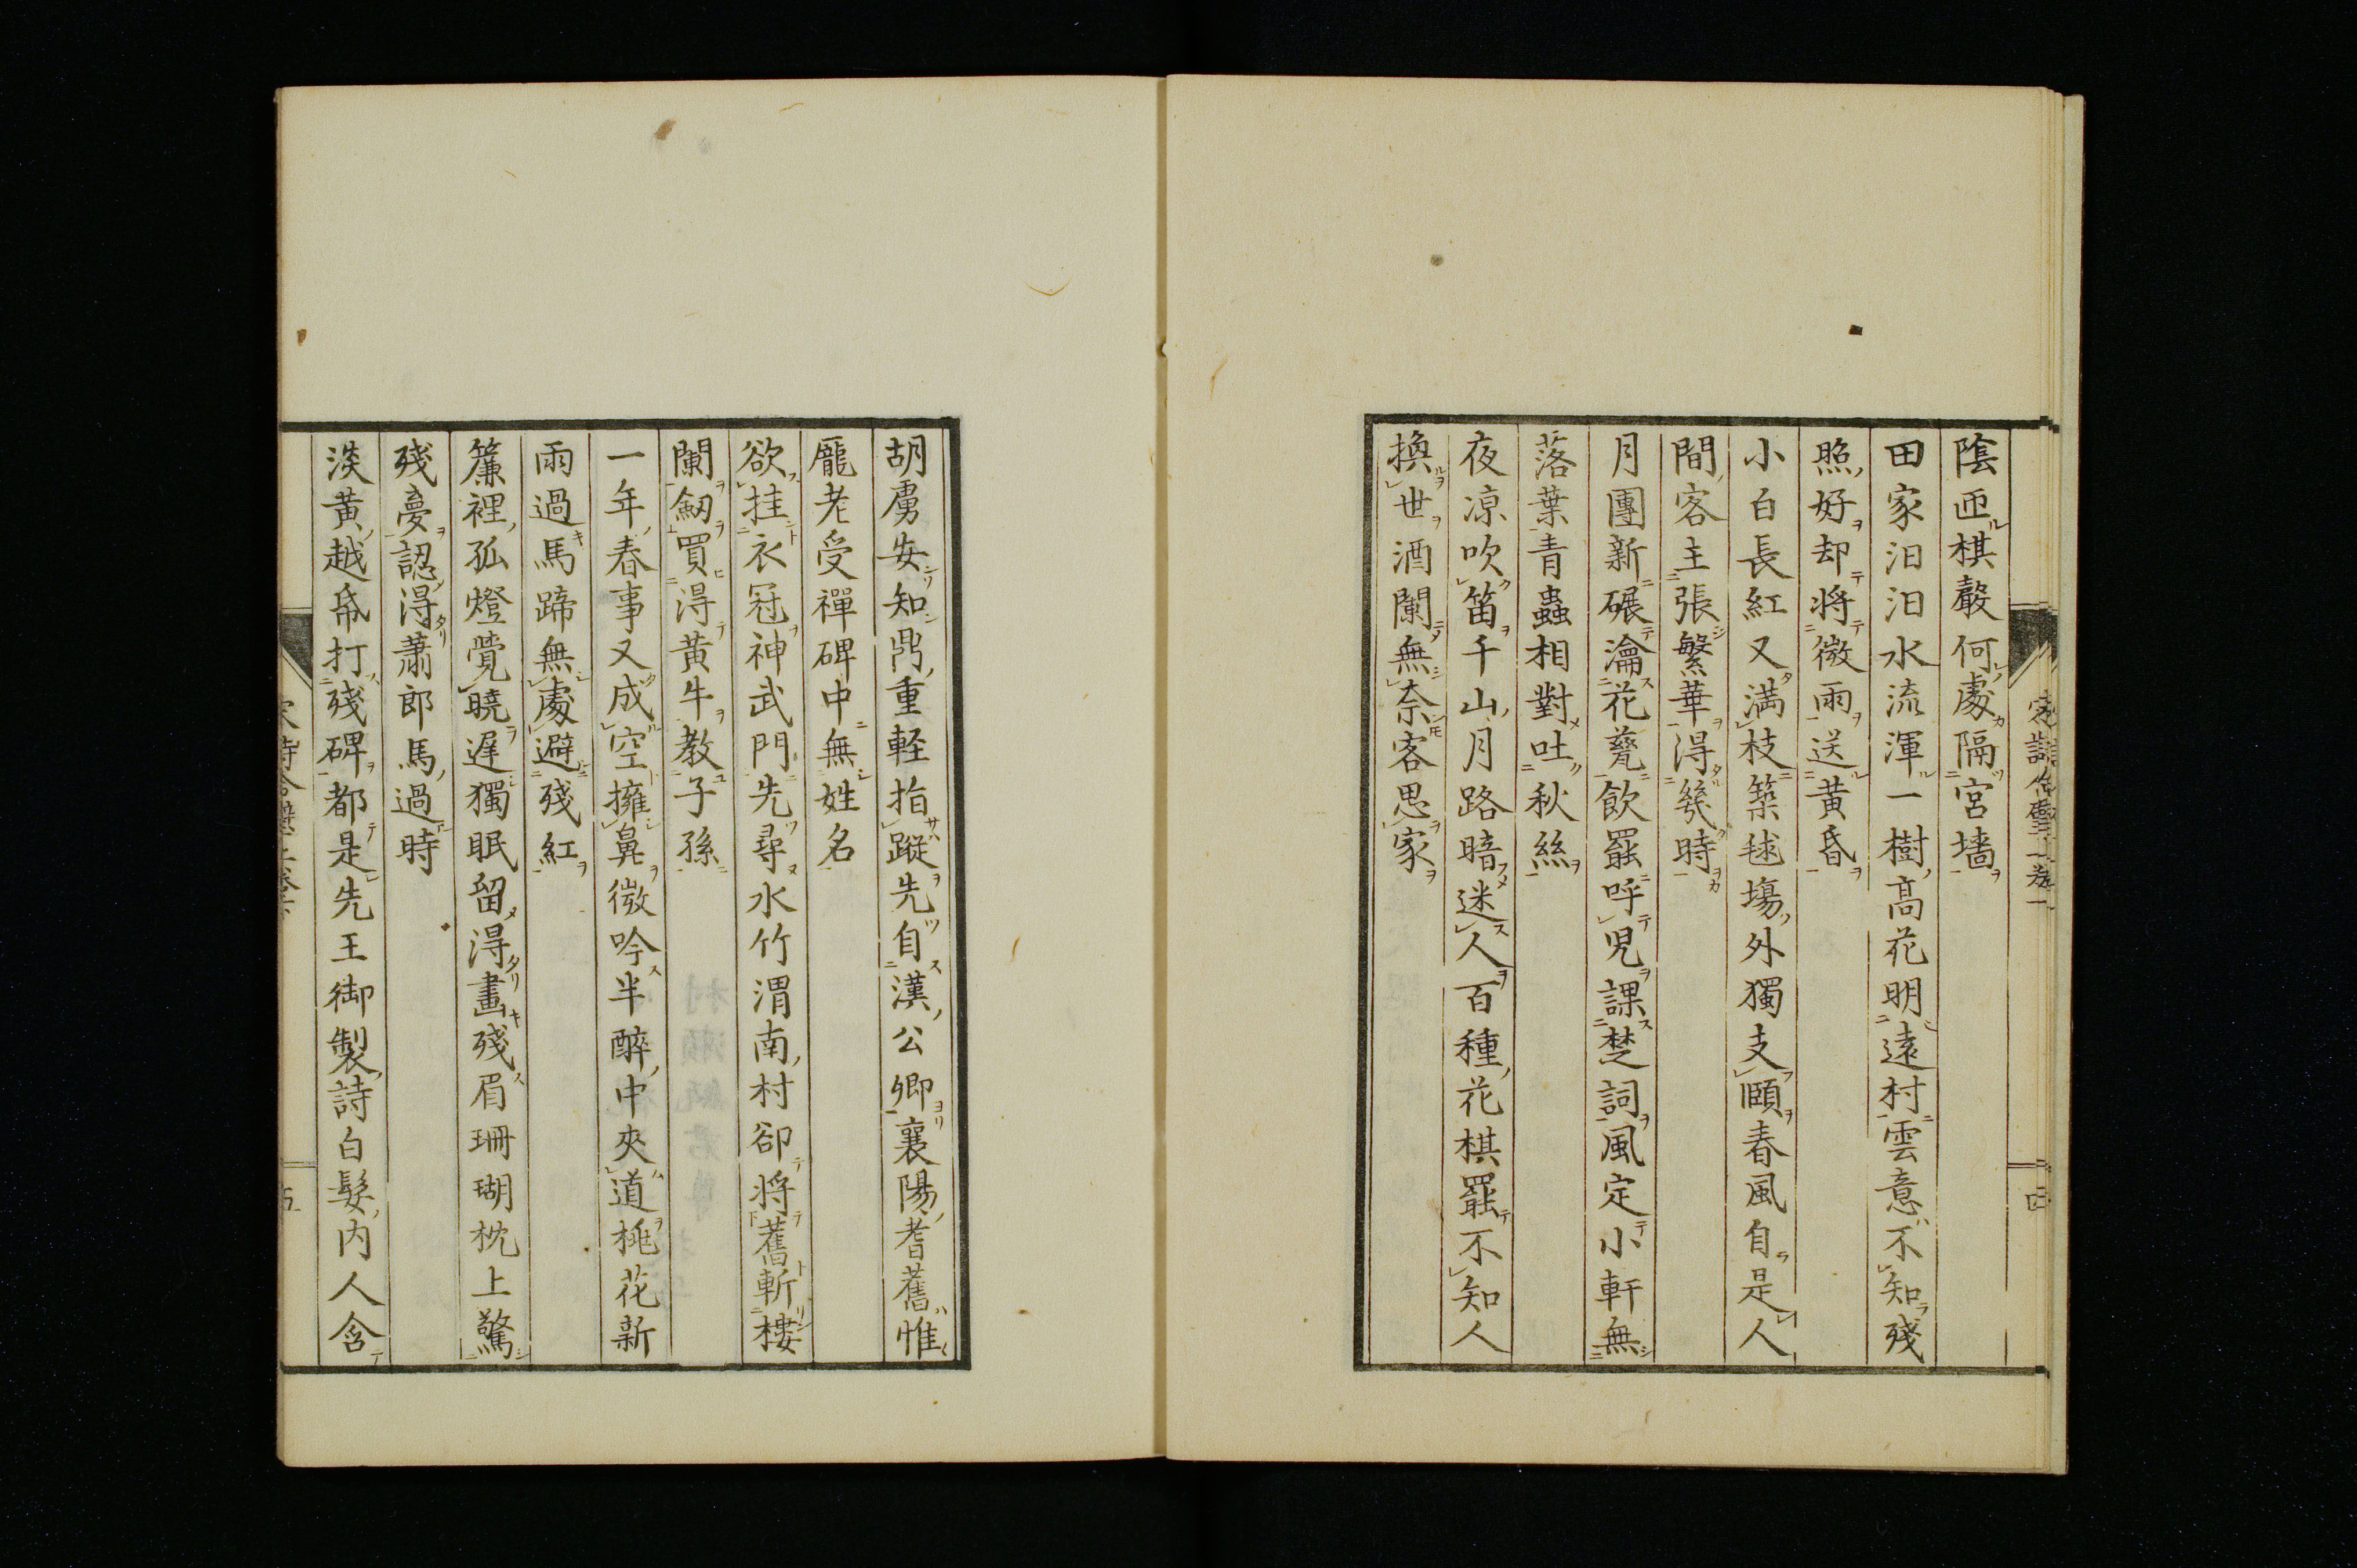 陰匝棋聲何處隔宮墻
田家汨汨水流渾一樹高花明遠村雲意不知殘
照好却將微雨送黃昏
小白長紅又滿枝築毬場外獨支頤春風自是人
間客主張繁華得幾時
月團新碾瀹花甆飲罷呼兒課楚詞風定小軒無
落葉青蟲相對吐秋絲
夜凉吹笛千山月路暗迷人百種花棋罷不知人
換世酒闌無奈客思家
胡虜安知鼎重輕指蹤先自漢公卿襄陽耆舊惟
龐老受禪碑中無姓名
欲挂衣冠神武門先尋水竹渭南村却將舊斬樓
蘭劔買得黃牛教子孫
一年春事又成空擁鼻微吟半醉中夾道桃花新
雨過馬蹄無處避殘紅
簾裡孤燈覺曉遲獨眠留得畫殘眉珊瑚枕上驚
殘夢認得蕭郎馬過時
淡黃越帋打殘碑都是先王御製詩白髮內人含